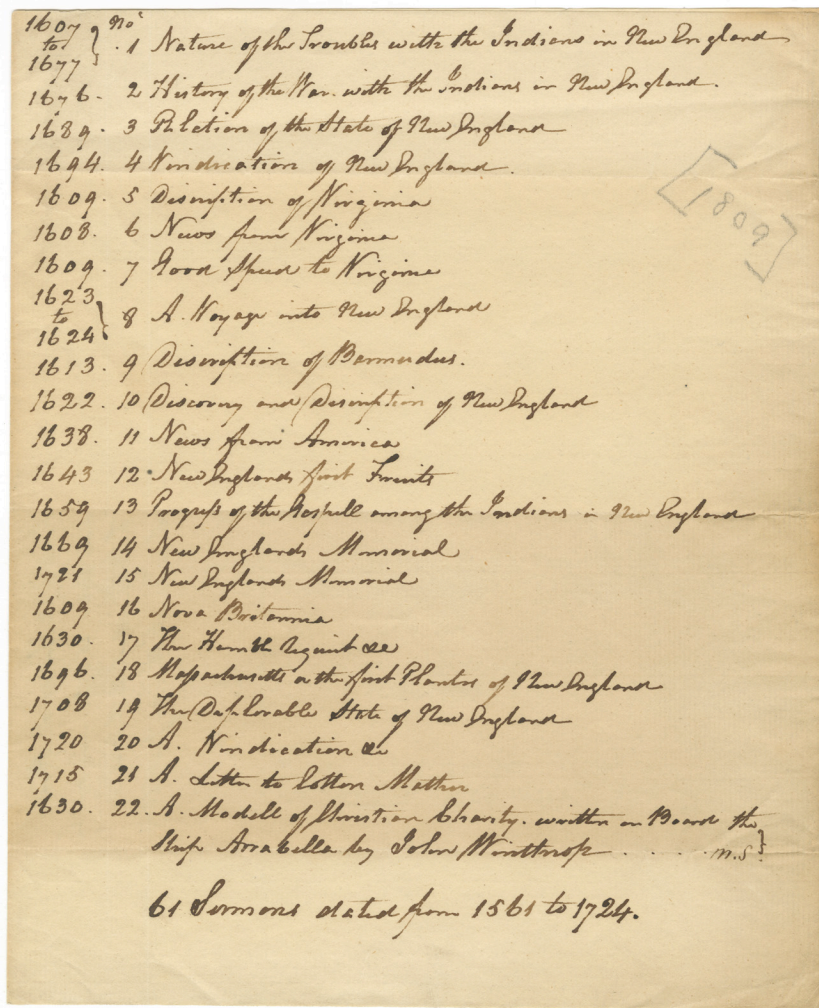 1607 to 1677 } No. 1 Nature of the Troubles with the Indians in New England
1676. 2 History of the War with the Indians in New England.
1689. 3 Relation of the State of New England
1694. 4 Vindication of New England.
1609. 5 Discription of Virginia
1608. 6 News from Virginia
1609. 7 Good Speed to Virginia
1623 to 1624 } 8 A. Voyage into New England
1613. 9 Discription of Barmudus.
1622. 10 Discovery and Discription of New England
1638. 11 News from America
1643 12 New Englands first Fruits
1659 13 Progress of the Gospell among the Indians in New England
1669 14 New Englands Memorial
1721 15 New Englands Memorial
1609 16 Nova Britannia
1630. 17 The Humble Request &c
1696. 18 Massachusetts or the first Planters of New England
1708 19 The Deplorable State of New England
1720 20 A. Vindication &c
1715 21 A. Letter to Cotton Mather
1630. 22. A. Modell of Christian Charity. written on Board the
Ship Arrabella by John Winthrop . . . . . m.s }
61 Sermons dated from 1561 to 1724.
[1809]